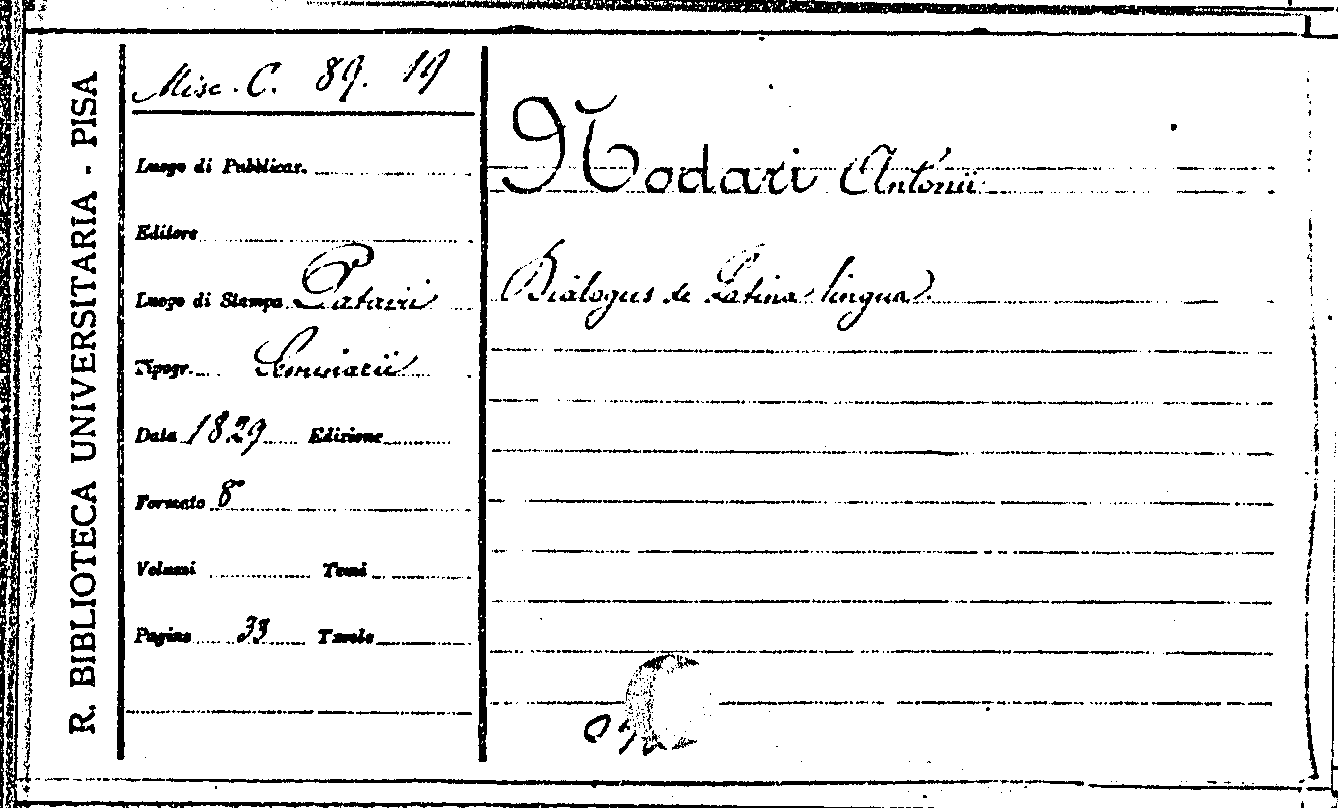 R. BIBLIOTECA UNIVERSITARIA - PISA
Misc. C. 89. 19
Luogo di Pubblicaz.
Editore
Luogo di Stampa Patavii
Tipogr. Seminarii
Data 1829 Edizione
Formato 8°
Volumi Tomi
Pagine 33 Tavole
Nodari Antonii
Dialogus de Latina lingua.